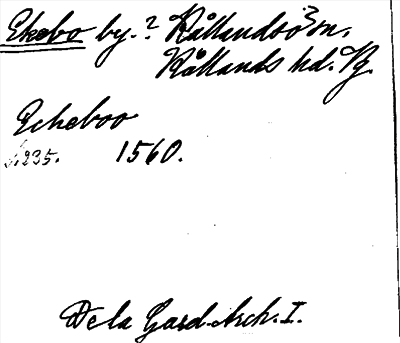 Ekebo by.? Kållandsö sn.
Kållands hd. Vg.
Echeboo
s. 235. 1560.
De la Gard. Arch. I.